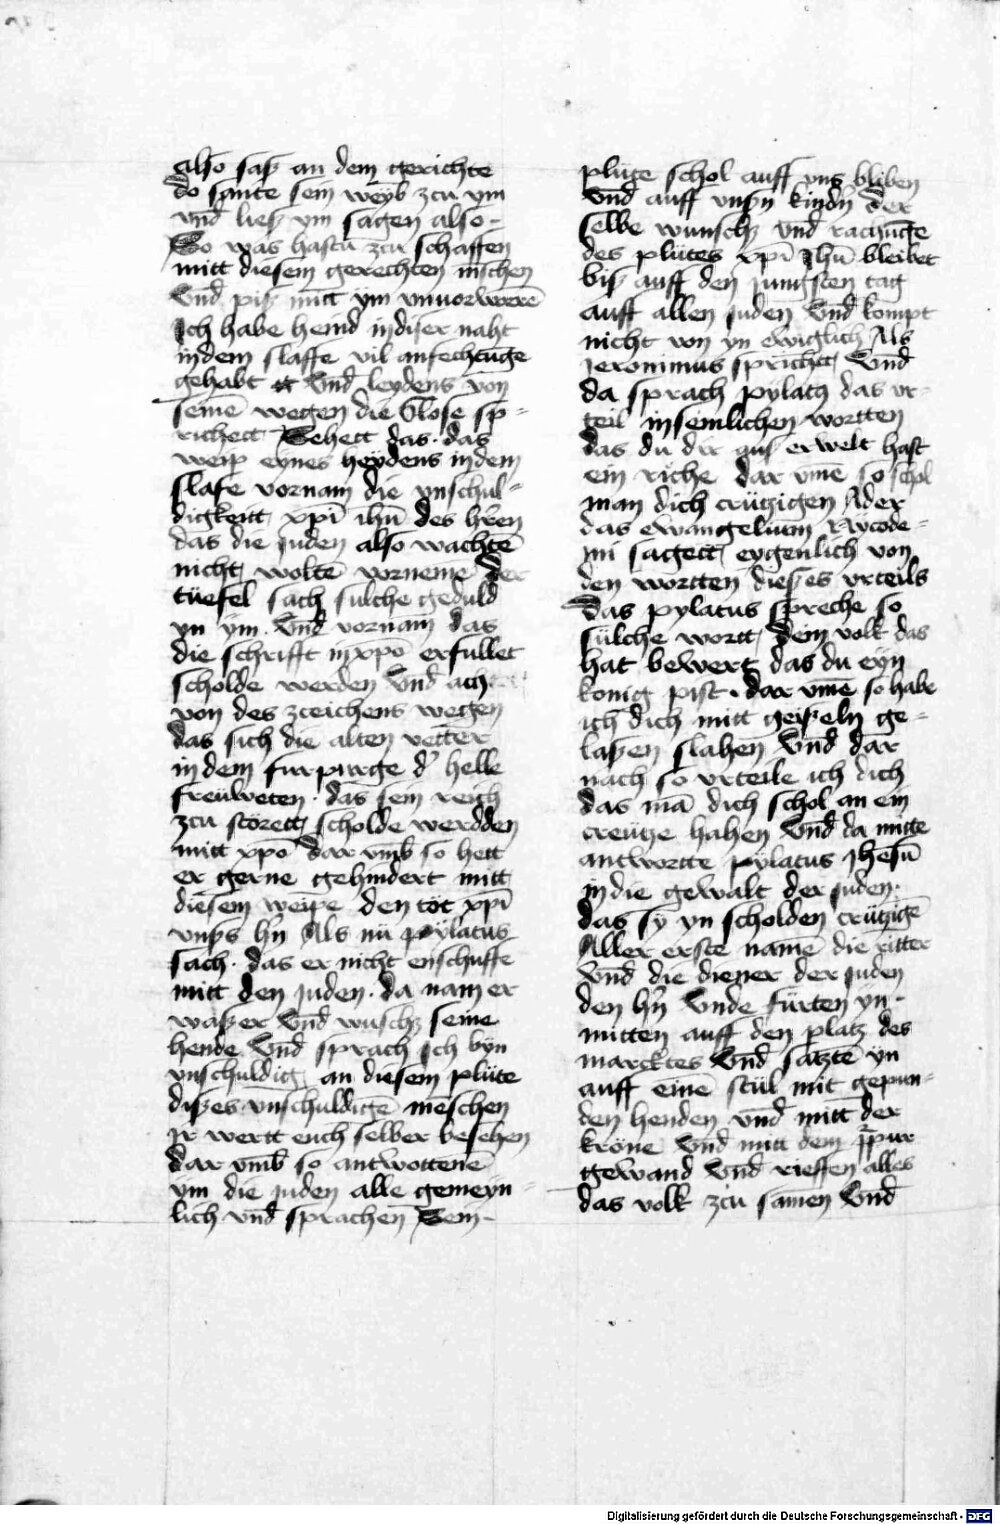 also saß an dem gerichte
do sante sein weyb zcu ym
vnd ließ ym sagen also -
So was hastu zcu schaffen
mitt diesem gerechten mēschen
Vnd piß mitt ym vnuorworrē
Ich habe heind in diser naht
in dem slaffe vil anfechtūge
gehabt Vnd leydens von
seinē wegen die Glose sp-
richett Sehett das · das
weip eynes heydens in dem
slafe vornam die vnschul-
digkeitt xp̄i ih̄u des hr̄en
das die juden also wachtē
nicht woltē vornemē der
tüefel sach sulche geduld
yn ym · Vnd vornam das
die schrifft in xp̄o erfullet
scholde werden Vnd
von des zceichens wegen
das sich die alten vetter
in dem furpurge d' helle
freuweten · das sein reich
zcu störett scholde werdden
mitt xp̄o dar vmb so hett
er gerne gehindert mitt
diesem weipe den töt xp̄i
vnßs hn̄ Als nu pylatus
sach · das er nicht enschuffe
mitt den juden · da nam er
waßer Vnd wusch seine
hende Vnd sprach ich byn
vnschuldig an diesem plüte
dißes vnschuldigē mēschen
jr wertt euch selber besehen
dar vmb so antwottenē
ym die juden alle gemeyn-
lich vnd sprachen Sein -
plüte schol auff vns bliben
vnd auff vnsn̄ kindn̄ der
selbe wunsch vnd rachūge
des plütes xp̄i Ih̄u bleibet
biß auff den jungsten tag
auff allen juden Vnd kompt
nicht von yn ewiglich Als
jeronimus sprichtt Vnd
da sprach pylatus das vr-
teil in semlichen wortten
das du dir auß erwelt hast
ein riche dar vmē so schol
man dich crützigen Ader
das ewangelium Nycode-
mi sagett eygenlich von
den wortten dießes vrteils
Das pylatus spreche so
sülche wortt dein volk das
hat bewert das du eyn
konig pist · dar vmē so habe
ich dich mitt geißeln ge-
laßen slahen Vnd dar
nach so vrteile ich dich
das mā dich schol an ein
creütze hahen Vnd da mitte
antwortte pylatus Jhesū
in die gewalt der juden ·
das sy yn scholden crützigē
Aller erste namē die ritter
Vnd die diener der juden
den hn̄ Vnde fürten yn -
mitten auff den platz des
marcktes Vnd satztē yn
auff einē stül mit gepun-
den henden vnd mitt der
kröne Vnd mitt dem p̄pur
gewand Vnd rieffen alles
das volk zcu samen Vnd
Digitalisierung gefördert durch die Deutsche Forschungsgemeinschaft - DFG